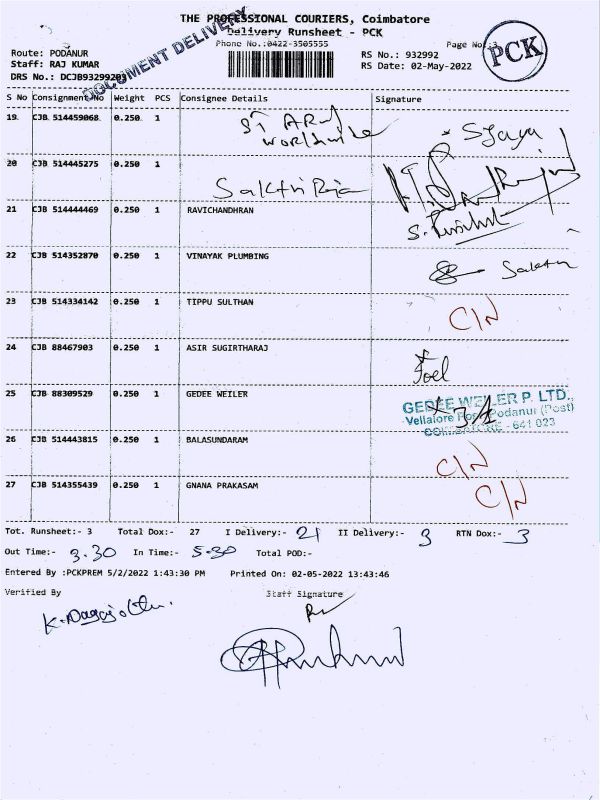 THE PROFESSIONAL COURIERS, Coimbatore
Delivery Runsheet - PCK
Phone No.:0422-3505555
Page No.:3
PCK
DOCUMENT DELIVERY
Route: PODANUR
Staff: RAJ KUMAR
DRS No.: DCJB93299203
RS No.: 932992
RS Date: 02-May-2022
S No Consignment No Weight PCS Consignee Details Signature
19 CJB 514459068 0.250 1 worldwide
20 CJB 514445275 0.250 1 Sakthi Raja
21 CJB 514444469 0.250 1 RAVICHANDHRAN
22 CJB 514352870 0.250 1 VINAYAK PLUMBING
23 CJB 514334142 0.250 1 TIPPU SULTHAN C/N
24 CJB 88467903 0.250 1 ASIR SUGIRTHARAJ Joel
25 CJB 88309529 0.250 1 GEDEE WEILER
GEDEE WEILER P. LTD.,
Vellalore Road, Podanur (Post)
COIMBATORE - 641 023
26 CJB 514443815 0.250 1 BALASUNDARAM C/N
27 CJB 514355439 0.250 1 GNANA PRAKASAM C/N
Tot. Runsheet:- 3 Total Dox:- 27 I Delivery:- 21 II Delivery:- 3 RTN Dox:- 3
Out Time:- 3.30 In Time:- 5-30 Total POD:-
Entered By :PCKPREM 5/2/2022 1:43:30 PM Printed On: 02-05-2022 13:43:46
Verified By Staff Signature